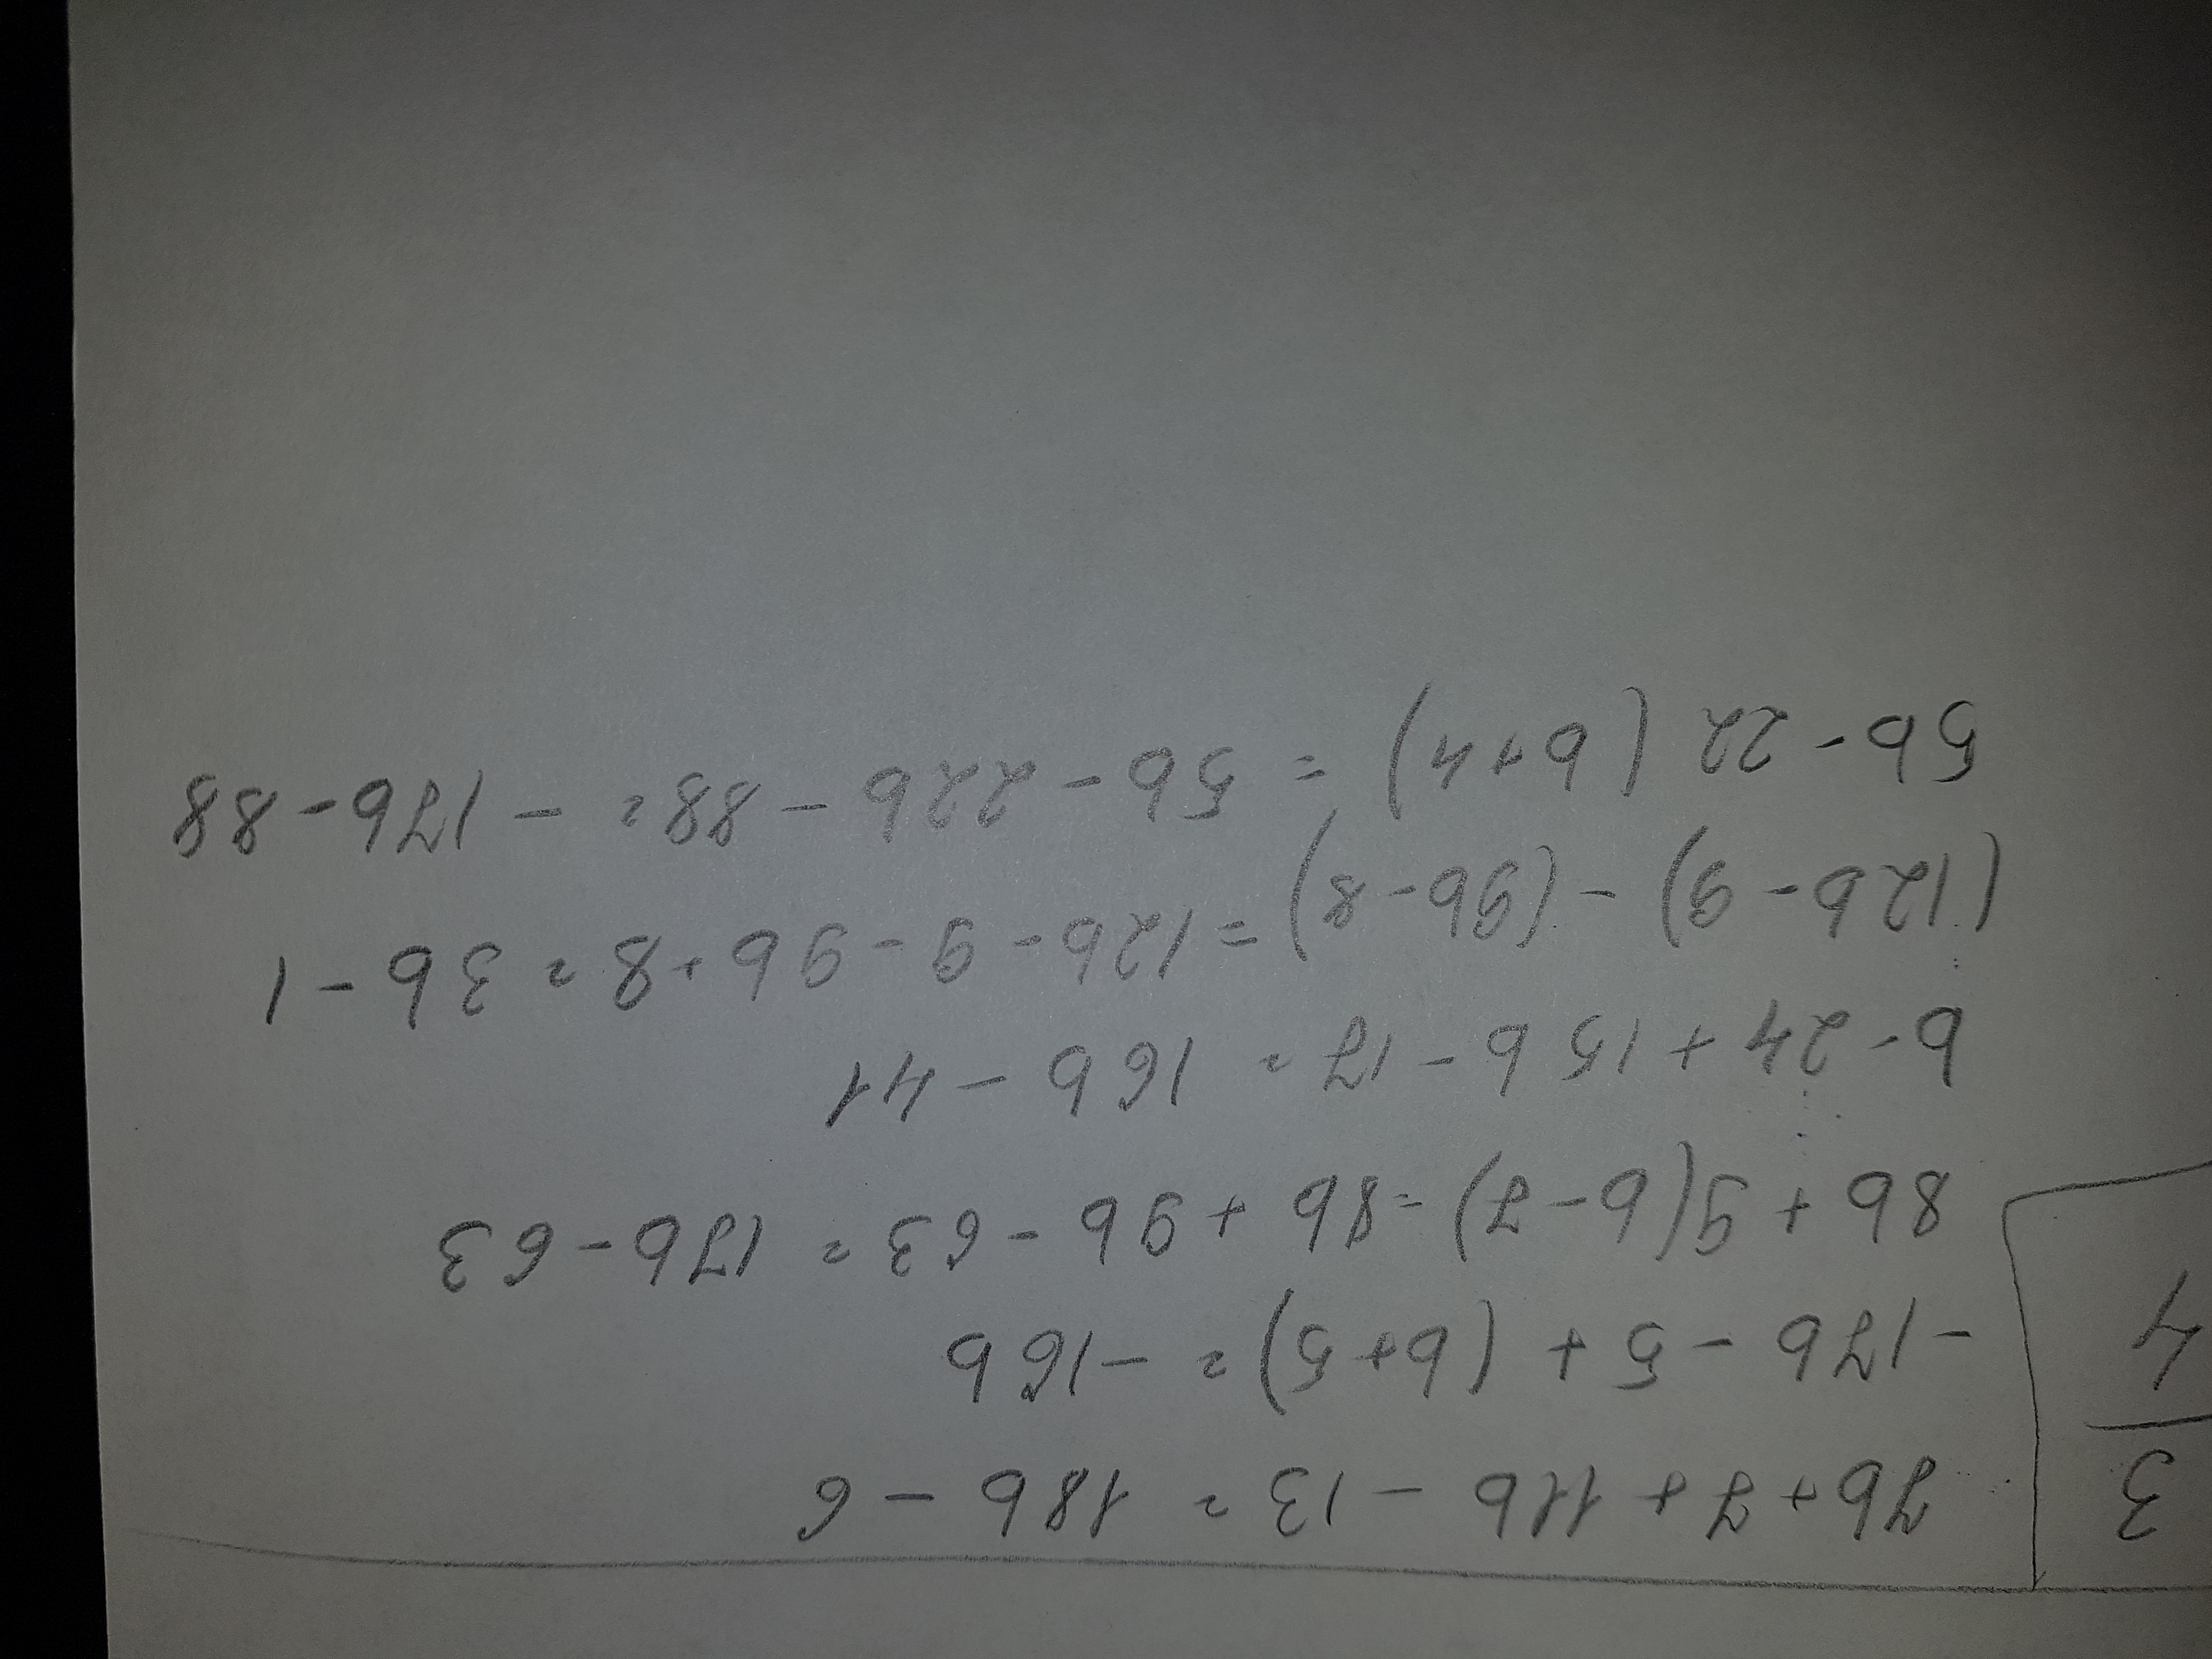 3
4
7b+7+11b-13=18b-6
-17b-5+(b+5)=-16b
8b+9(b-7)=8b+9b-63=17b-63
b-24+15b-17=16b-41
(12b-9)-(9b-8)=12b-9-9b+8=3b-1
5b-22(b+4)=5b-22b-88=-17b-88